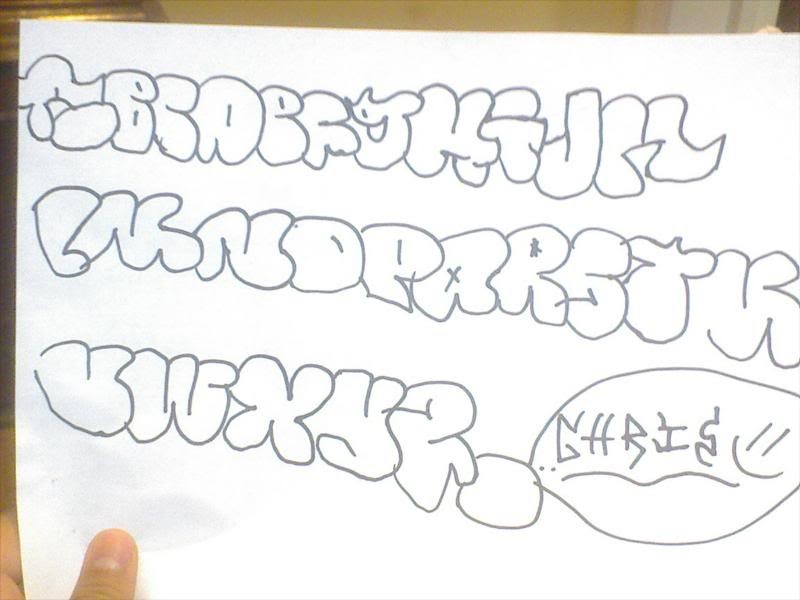 ABCDEFGHIJK
LMNOPQRSTU
VWXYZ
CHRIS